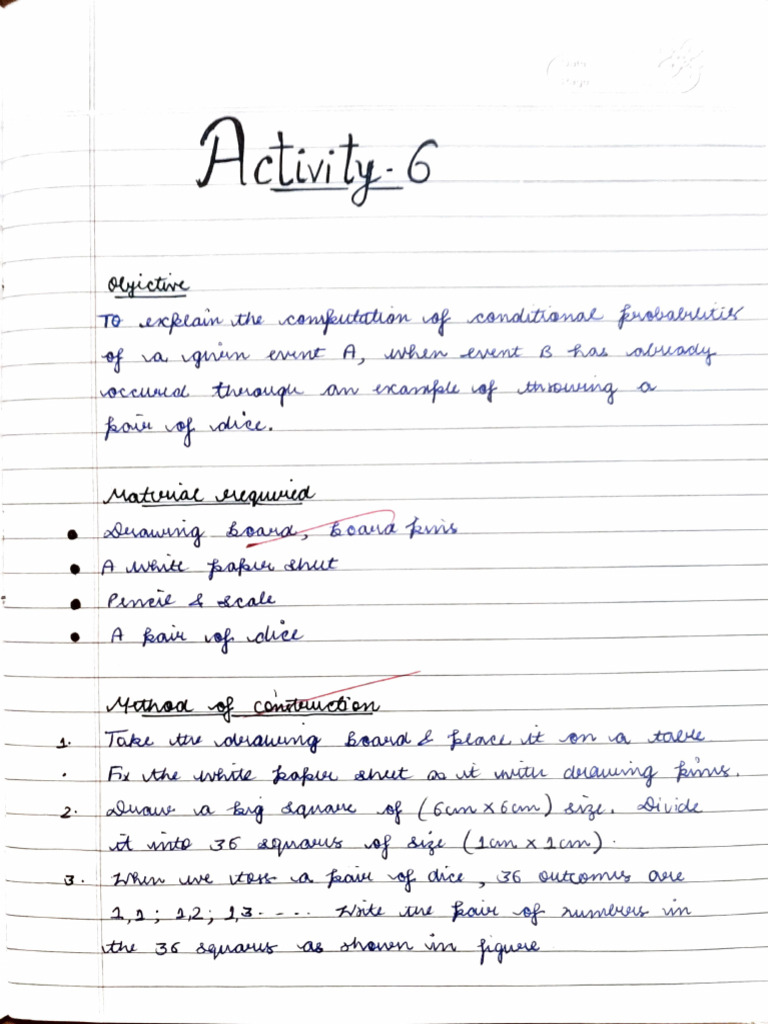 Activity-6
Objective
To explain the computation of conditional probabilities
of a given event A, when event B has already
occured through an example of throwing a
pair of dice.
Material required
• Drawing board, board pins
• A white paper sheet
• Pencil & scale
• A pair of dice
Method of construction
1. Take the drawing board & place it on a table
. Fix the white paper sheet as it with drawing pins.
2. Draw a big square of (6cm × 6cm) size. Divide
it into 36 squares of size (1cm × 1cm).
3. When we toss a pair of dice, 36 outcomes are
1,1 ; 1,2 ; 1,3 - - - .. Write the pair of numbers in
the 36 squares as shown in figure